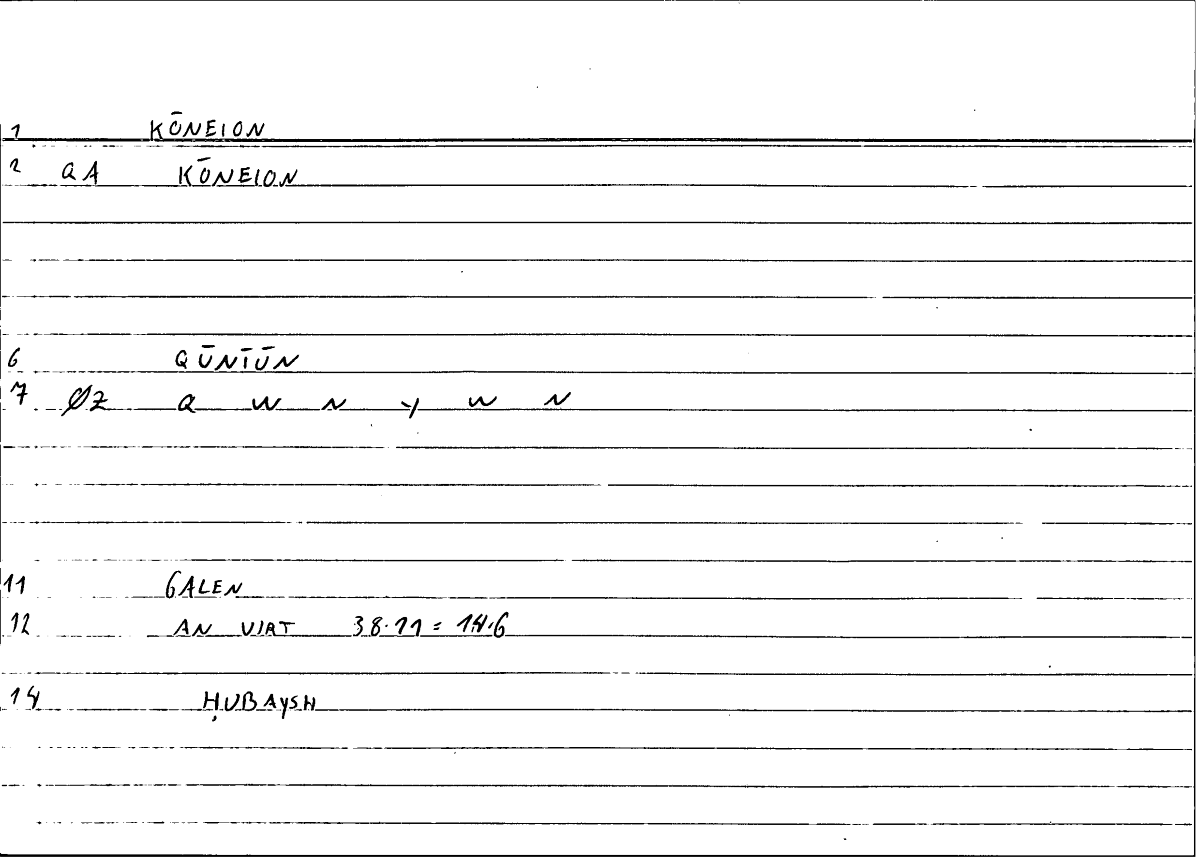 1 KŌNEION
2 QA KŌNEION
6 QŪNĪŪN
7 ØZ Q W N Y W N
11 GALEN
12 AN VIRT 38.11 = 14.6
14 ḤUBAYSH